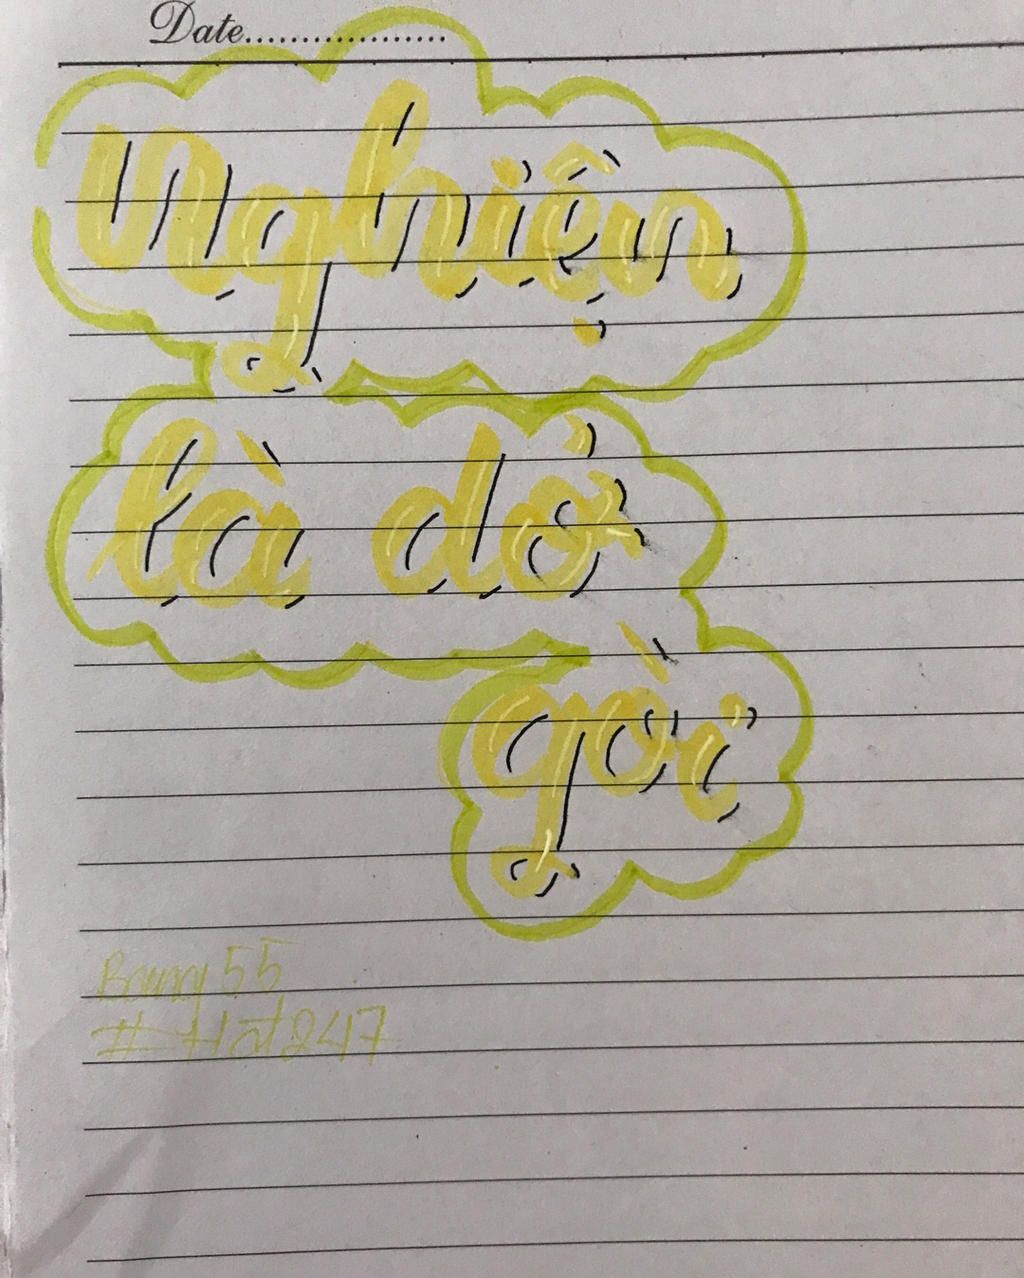 Date..................
Nghiện
là dở
gời
Bamg 55
#Hat247